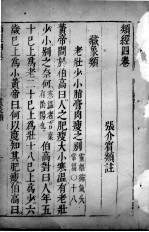 類經四卷
張介賓類註
藏象類
老壯少小脂膏肉瘦之別
黃帝問於伯高曰人之肥瘦大小寒溫有老壯
少小別之奈何伯高對曰人年五
十已上為老二十已上為壯十八已上為少六
歲已上為小黃帝曰何以度知其肥瘦伯高曰